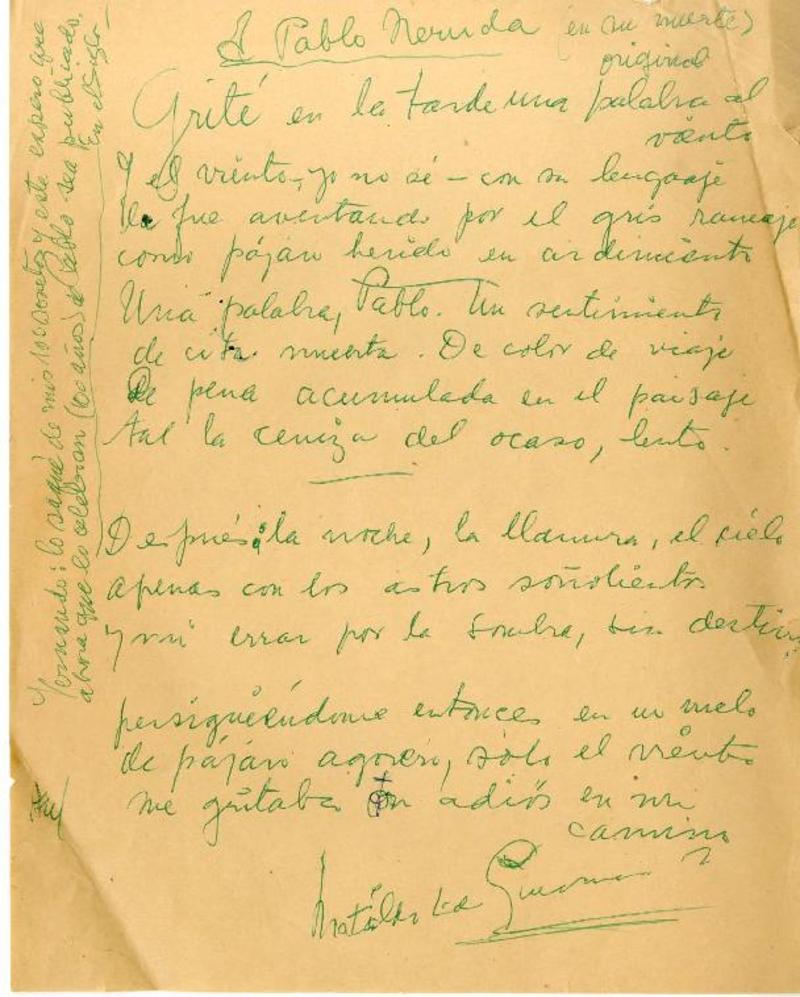 A Pablo Neruda (en su muerte)
original
Grité en la tarde una palabra al
viento
Y el viento, yo no sé – con su lenguaje
la fue aventando por el gris ramaje
como pájaro herido en ardimiento
Una palabra, Pablo. Un sentimiento
de cita muerta. De color de viaje
De pena acumulada en el paisaje
tal la ceniza del ocaso, lento.
Después: la noche, la llanura, el cielo
apenas con los astros soñolientos
y mi errar por la sombra, sin destino
persiguiéndome entonces en un vuelo
de pájaro agorero, sólo el viento
me gritaba un adiós en mi
camino
Matilde Ladrón de Guevara
: lo saqué de mis 100 sonetos y este espero que
ahora que lo celebran (100 años) a Pablo sea publicado.
En el Siglo –